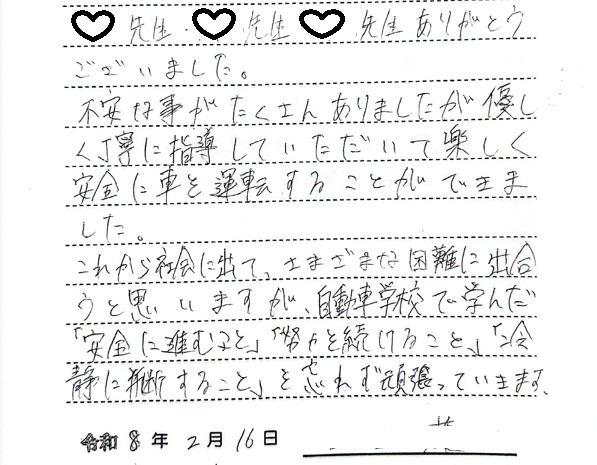 ♡先生.♡先生♡先生ありがとう
ございました。
不安な事がたくさんありましたが優し
く丁寧に指導していただいて楽しく
安全に車を運転することができま
した。
これから社会に出て、さまざまな困難に出会
うと思いますが、自動車学校で学んだ
「安全に進むこと」「努力を続けること」、「冷
静に判断すること」を忘れず頑張っていきます。
令和8年2月16日